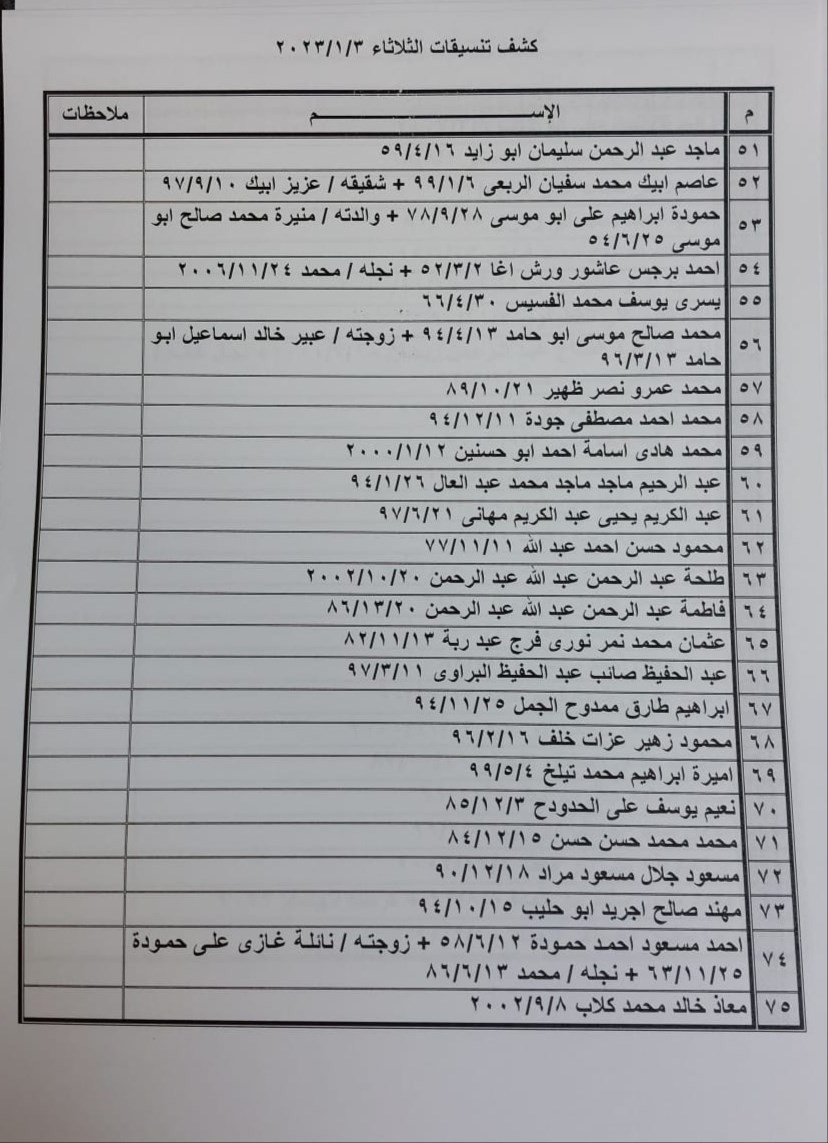 كشف تنسيقات الثلاثاء ٢٠٢٣/١/٣
م الإســـــــم ملاحظات
٥١ ماجد عبد الرحمن سليمان ابو زايد ٥٩/٤/١٦
٥٢ عاصم ابيك محمد سفيان الربعى ٩٩/١/٦ + شقيقه / عزيز ابيك ٩٧/٩/١٠
٥٣ حمودة ابراهيم على ابو موسى ٧٨/٩/٢٨ + والدته / منيرة محمد صالح ابو
موسى ٥٤/٦/٢٥
٥٤ احمد برجس عاشور ورش اغا ٥٢/٣/٢ + نجله / محمد ٢٠٠٦/١١/٢٤
٥٥ يسرى يوسف محمد الفسيس ٦٦/٤/٣٠
٥٦ محمد صالح موسى ابو حامد ٩٤/٤/١٣ + زوجته / عبير خالد اسماعيل ابو
حامد ٩٦/٣/١٣
٥٧ محمد عمرو نصر ظهير ٨٩/١٠/٢١
٥٨ محمد احمد مصطفى جودة ٩٤/١٢/١١
٥٩ محمد هادى اسامة احمد ابو حسنين ٢٠٠٠/١/١٢
٦٠ عبد الرحيم ماجد ماجد محمد عبد العال ٩٤/١/٢٦
٦١ عبد الكريم يحيى عبد الكريم مهانى ٩٧/٦/٢١
٦٢ محمود حسن احمد عبد الله ٧٧/١١/١١
٦٣ طلحة عبد الرحمن عبد الله عبد الرحمن ٢٠٠٢/١٠/٢٠
٦٤ فاطمة عبد الرحمن عبد الله عبد الرحمن ٨٦/١٣/٢٠
٦٥ عثمان محمد نمر نورى فرج عبد ربة ٨٢/١١/١٣
٦٦ عبد الحفيظ صائب عبد الحفيظ البراوى ٩٧/٣/١١
٦٧ ابراهيم طارق ممدوح الجمل ٩٤/١١/٢٥
٦٨ محمود زهير عزات خلف ٩٦/٢/١٦
٦٩ اميرة ابراهيم محمد تيلخ ٩٩/٥/٤
٧٠ نعيم يوسف على الحدودح ٨٥/١٢/٣
٧١ محمد محمد حسن حسن ٨٤/١٢/١٥
٧٢ مسعود جلال مسعود مراد ٩٠/١٢/١٨
٧٣ مهند صالح اجريد ابو حليب ٩٤/١٠/١٥
٧٤ احمد مسعود احمد حمودة ٥٨/٦/١٢ + زوجته / نائلة غازى على حمودة
٦٣/١١/٢٥ + نجله / محمد ٨٦/٦/١٣
٧٥ معاذ خالد محمد كلاب ٢٠٠٢/٩/٨